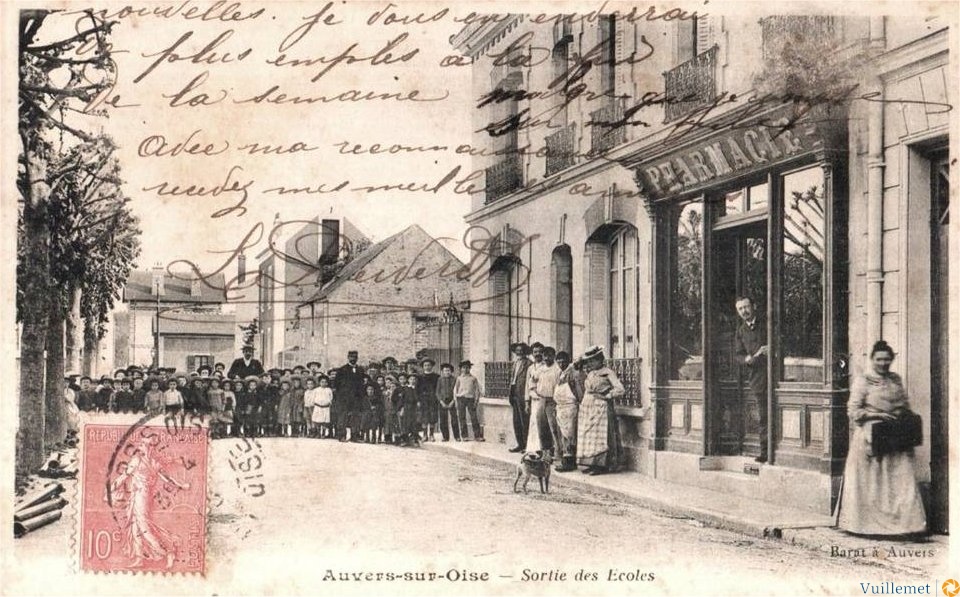 nouvelles. Je vous en enverrai
plus amples à la fin
de la semaine
Avec ma reconnaissance
recevez mes meilleurs
PHARMACIE
REPUBLIQUE FRANÇAISE
10c
OISE
Barat à Auvers
Auvers-sur-Oise — Sortie des Ecoles
Vuillemet